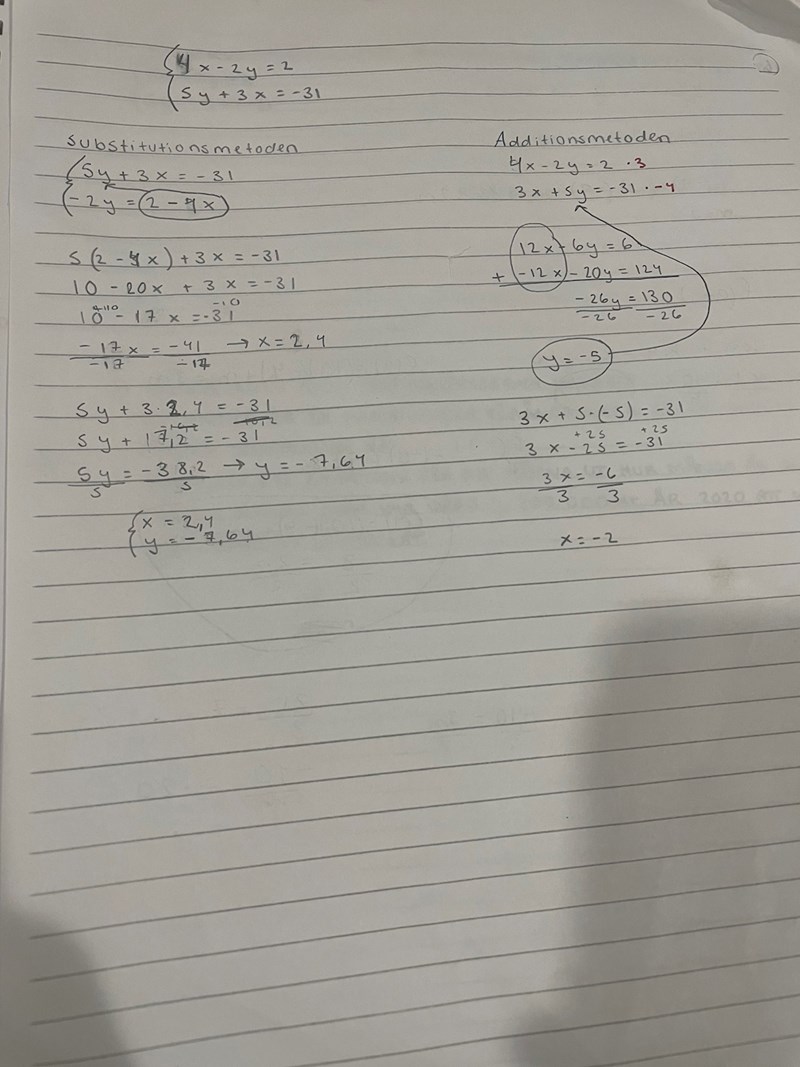 4x - 2y = 2
5y + 3x = -31
Substitutionsmetoden
5y + 3x = -31
-2y = 2 - 4x
5(2 - 4x) + 3x = -31
10 - 20x + 3x = -31
-10
10 - 17x = -31
-17x = -41 → x = 2,4
-17 -17
5y + 3·2,4 = -31
5y + 17,2 = -31
5y = -38,2 → y = -7,64
5 5
x = 2,4
y = -7,64
Additionsmetoden
4x - 2y = 2 ·3
3x + 5y = -31 ·-4
12x - 6y = 6
+ -12x - 20y = 124
-26y = 130
-26 -26
y = -5
3x + 5·(-5) = -31
+25 +25
3x - 25 = -31
3x = -6
3 3
x = -2